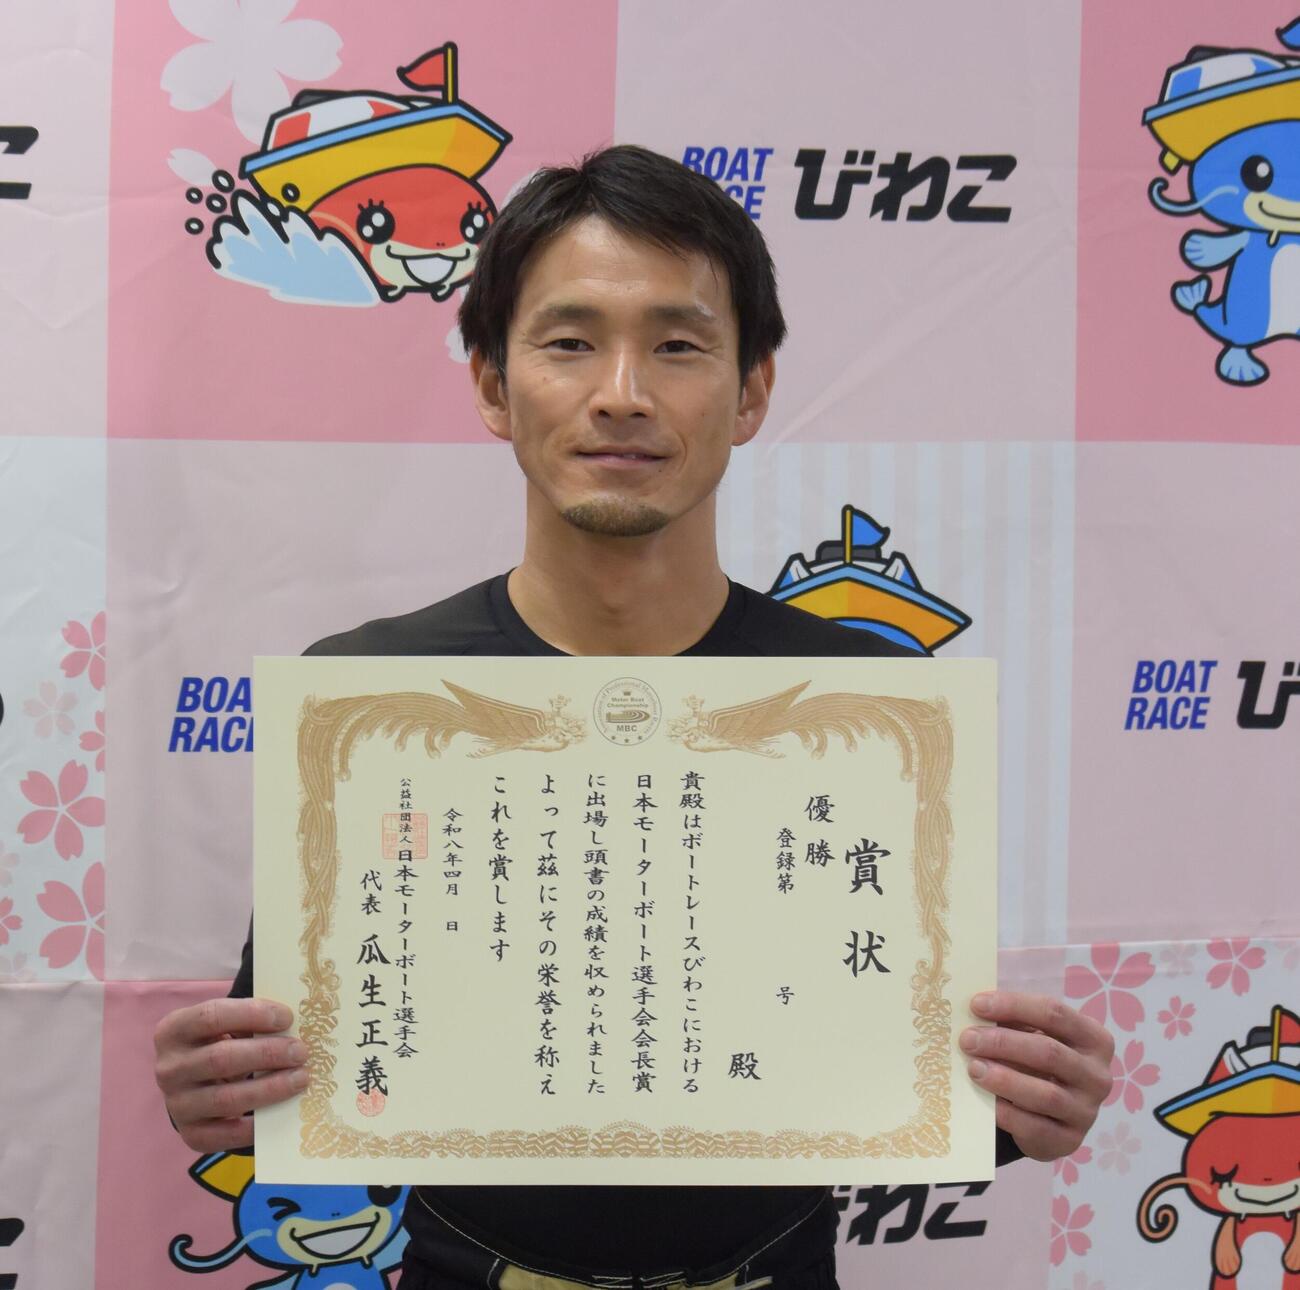 BOAT RACE びわこ
BOAT RACE
BOAT RACE び
Motor Boat
Championship
MBC
賞状
優勝
登録第 号
殿
貴殿はボートレースびわこにおける
日本モーターボート選手会会長賞
に出場し頭書の成績を収められました
よって茲にその栄誉を称え
これを賞します
令和八年四月 日
公益社団法人 日本モーターボート選手会
代表 瓜生正義
びわこ